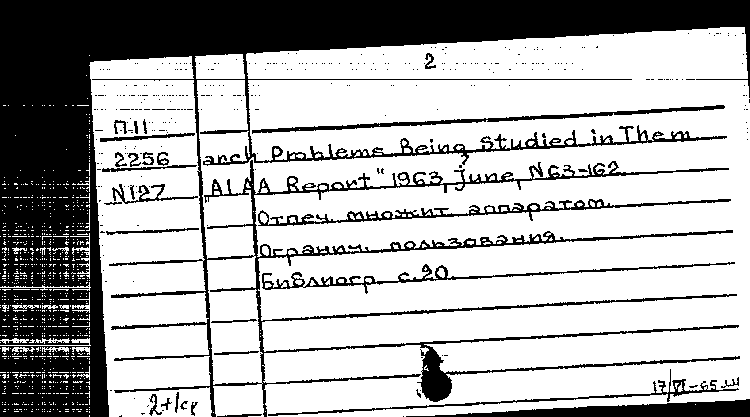 2
П11
2256 arch Problems Being Studied in Them
N127 „AIAA Report" 1963, June, N63-162.
Отпеч. множит. аппаратом.
Огранич. пользования.
Библиогр. с.20.
17/VI-65